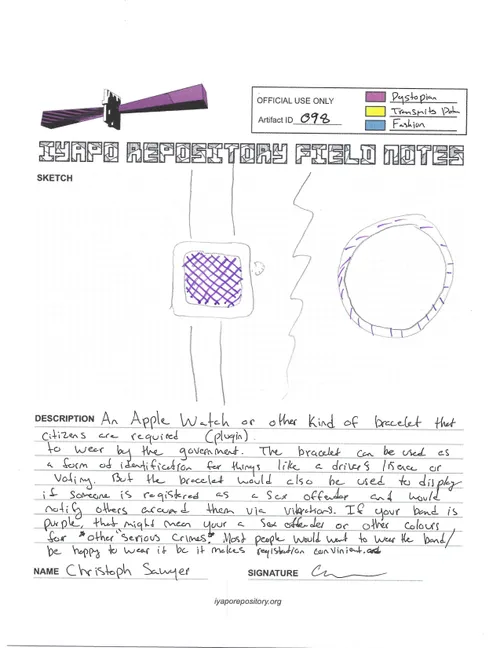 OFFICIAL USE ONLY
Artifact ID 098
Dystopian
Transmits Data
Fashion
IYAPO REPOSITORY FIELD NOTES
SKETCH
DESCRIPTION An Apple Watch or other kind of bracelet that
citizens are required (plugin)
to wear by the government. The bracelet can be used as
a form of identification for things like a drivers lisence or
Voting. But the bracelet would also be used to display
if someone is registered as a Sex offender and would
notify others around them via vibrations. If your band is
purple, that might mean your a Sex offender or other colours
for "other "serious crimes." Most people would want to wear the band/
be happy to wear it bc it makes registration convinient.
NAME Christoph Sawyer SIGNATURE
iyaporepository.org